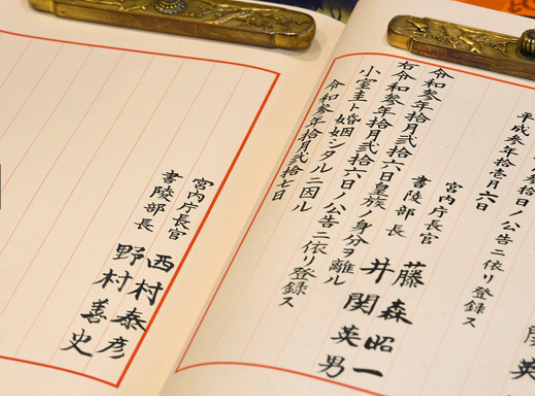 拾日ノ公告ニ依リ登録ス
平成参年拾壱月六日
宮内庁長官 藤森昭一
書陵部長 井関英男
令和参年拾月弐拾六日皇族ノ身分ヲ離ル
右令和参年拾月弐拾六日ノ公告ニ依リ登録ス
小室圭ト婚姻シタルニ因ル
令和参年拾月弐拾七日
宮内庁長官 西村泰彦
書陵部長 野村善史